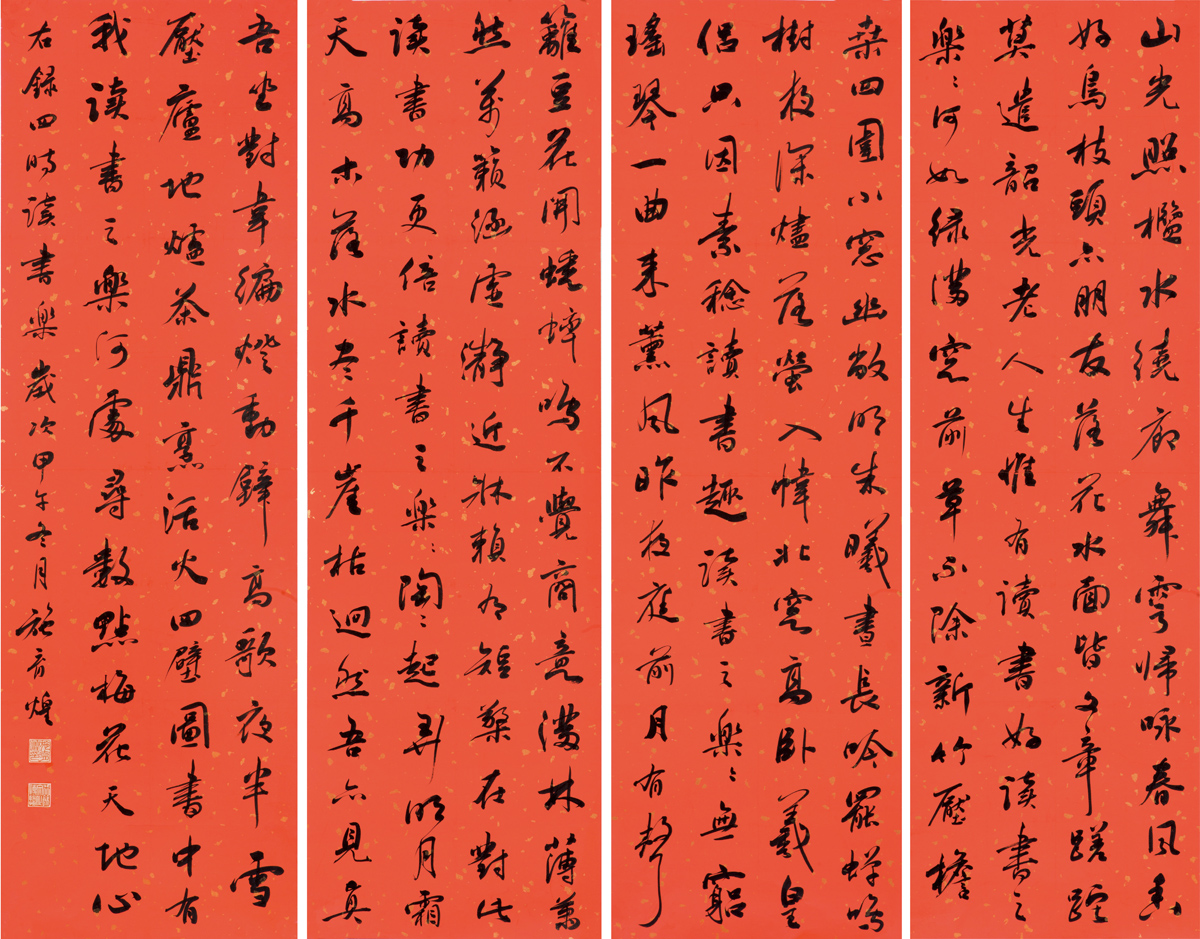 山光照檻水繞廊舞雩歸咏春風香
好鳥枝頭亦朋友落花水面皆文章蹉跎
莫遣韶光老人生惟有讀書好讀書之
樂〻何如綠滿窗前草不除新竹壓檐
桑四圍小窗幽敞明朱曦晝長吟罷蟬鳴
樹夜深燼落螢入幃北窗高臥羲皇
侶只因素稔讀書趣讀書之樂〻無窮
瑤琴一曲來薰風昨夜庭前月有聲
籬豆花開蟋蟀鳴不覺商意滿林薄蕭
然萬籟涵虛瀞近牀賴有短檠在對此
讀書功更倍讀書之樂〻陶〻起弄明月霜
天高木落水盡千崖枯迥然吾亦見真
吾坐對韋編燈動壁高歌夜半雪
壓廬地爐茶鼎烹活火四壁圖書中有
我讀書之樂何處尋數點梅花天地心
右錄四時讀書樂歲次甲午冬月施煌